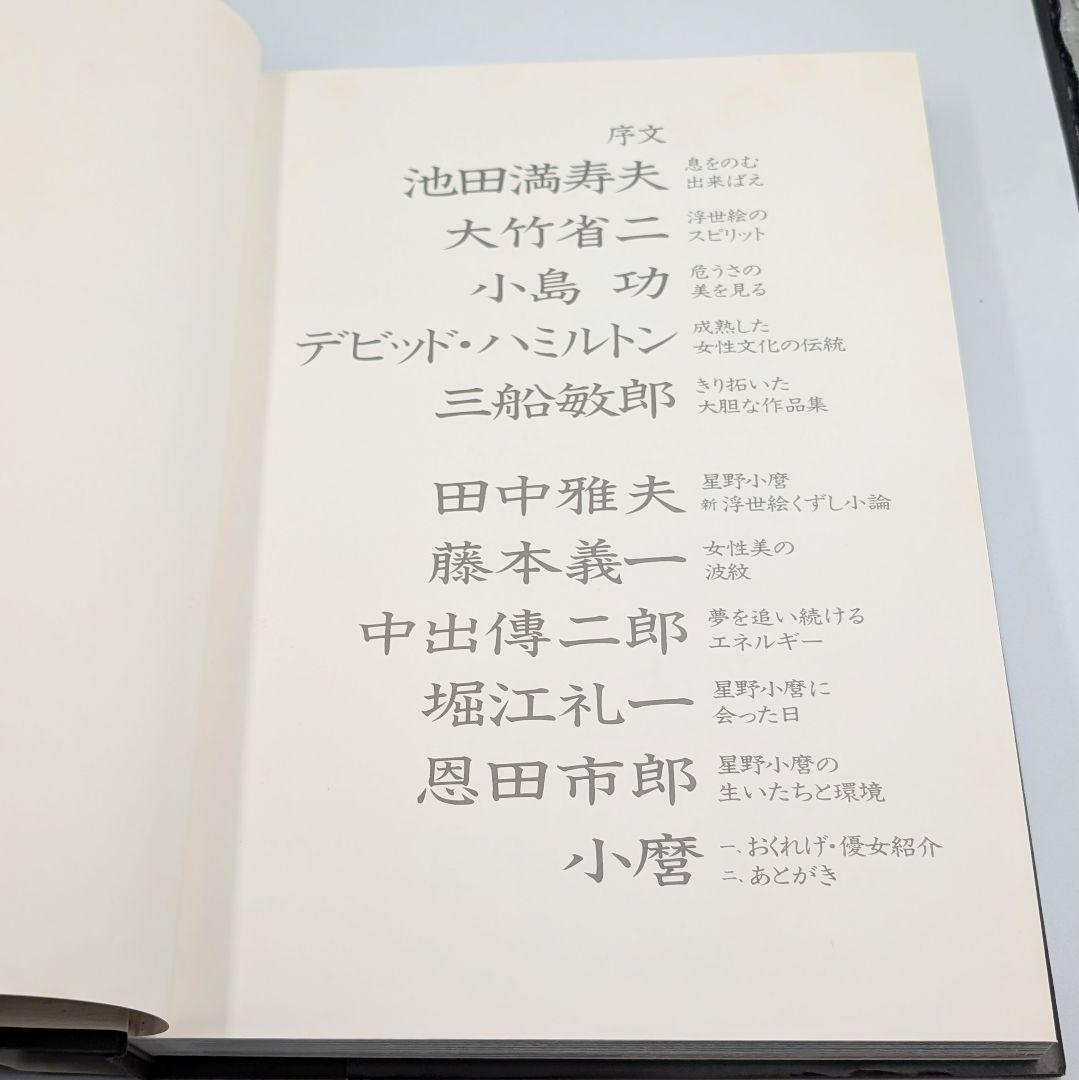 序文
池田満寿夫 息をのむ
出来ばえ
大竹省二 浮世絵の
スピリット
小島 功 危うさの
美を見る
デビッド・ハミルトン 成熟した
女性文化の伝統
三船敏郎 きり拓いた
大胆な作品集
田中雅夫 星野小麿
新 浮世絵くずし小論
藤本義一 女性美の
波紋
中出傳二郎 夢を追い続ける
エネルギー
堀江礼一 星野小麿に
会った日
恩田市郎 星野小麿の
生いたちと環境
小麿 一、おくれげ・優女紹介
二、あとがき